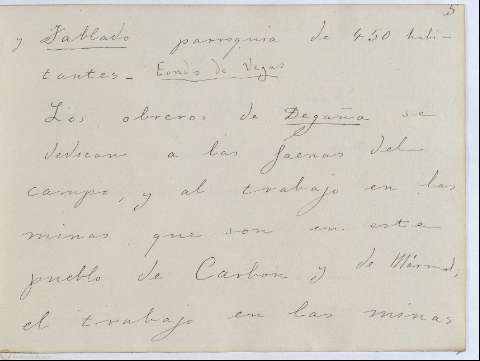 5
y Tablado parroquia de 450 habi-
tantes - Fondo de Vegas
Los obreros de Degaña se
dedican a las faenas del
campo, y al trabajo en las
minas que son en este
pueblo de Carbon y de Mármol,
el trabajo en las minas